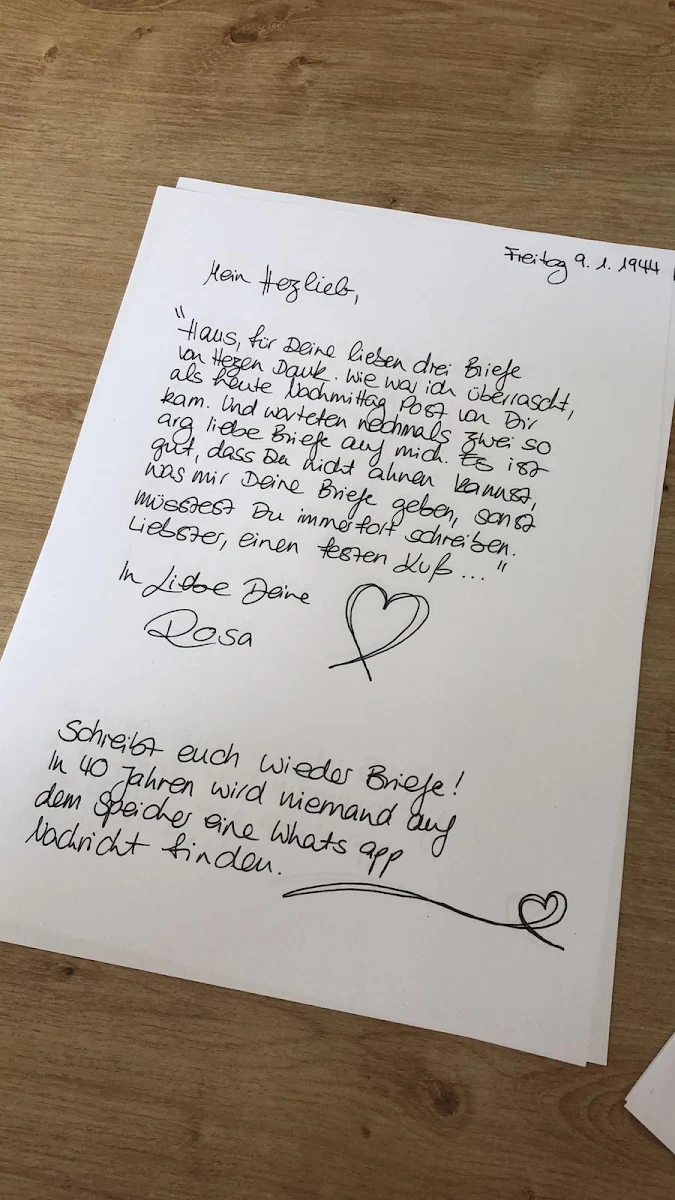 Freitag 9. 1. 1944
Mein Hezlieb,
"Haus, für Deine lieben drei Briefe
von Hezen Dank. Wie war ich überrascht,
als heute Nachmittag Post von Dir
kam. Und warteten nochmals zwei so
arg liebe Briefe auf mich. Es ist
gut, dass Du nicht ahnen kannst,
was mir Deine Briefe geben, sonst
müsstest Du immerfort schreiben.
Liebster, einen festen Kuß ..."
In Liebe Deine
Rosa
Schreibt euch wieder Briefe!
In 40 Jahren wird niemand auf
dem Speicher eine Whats app
Nachricht finden.